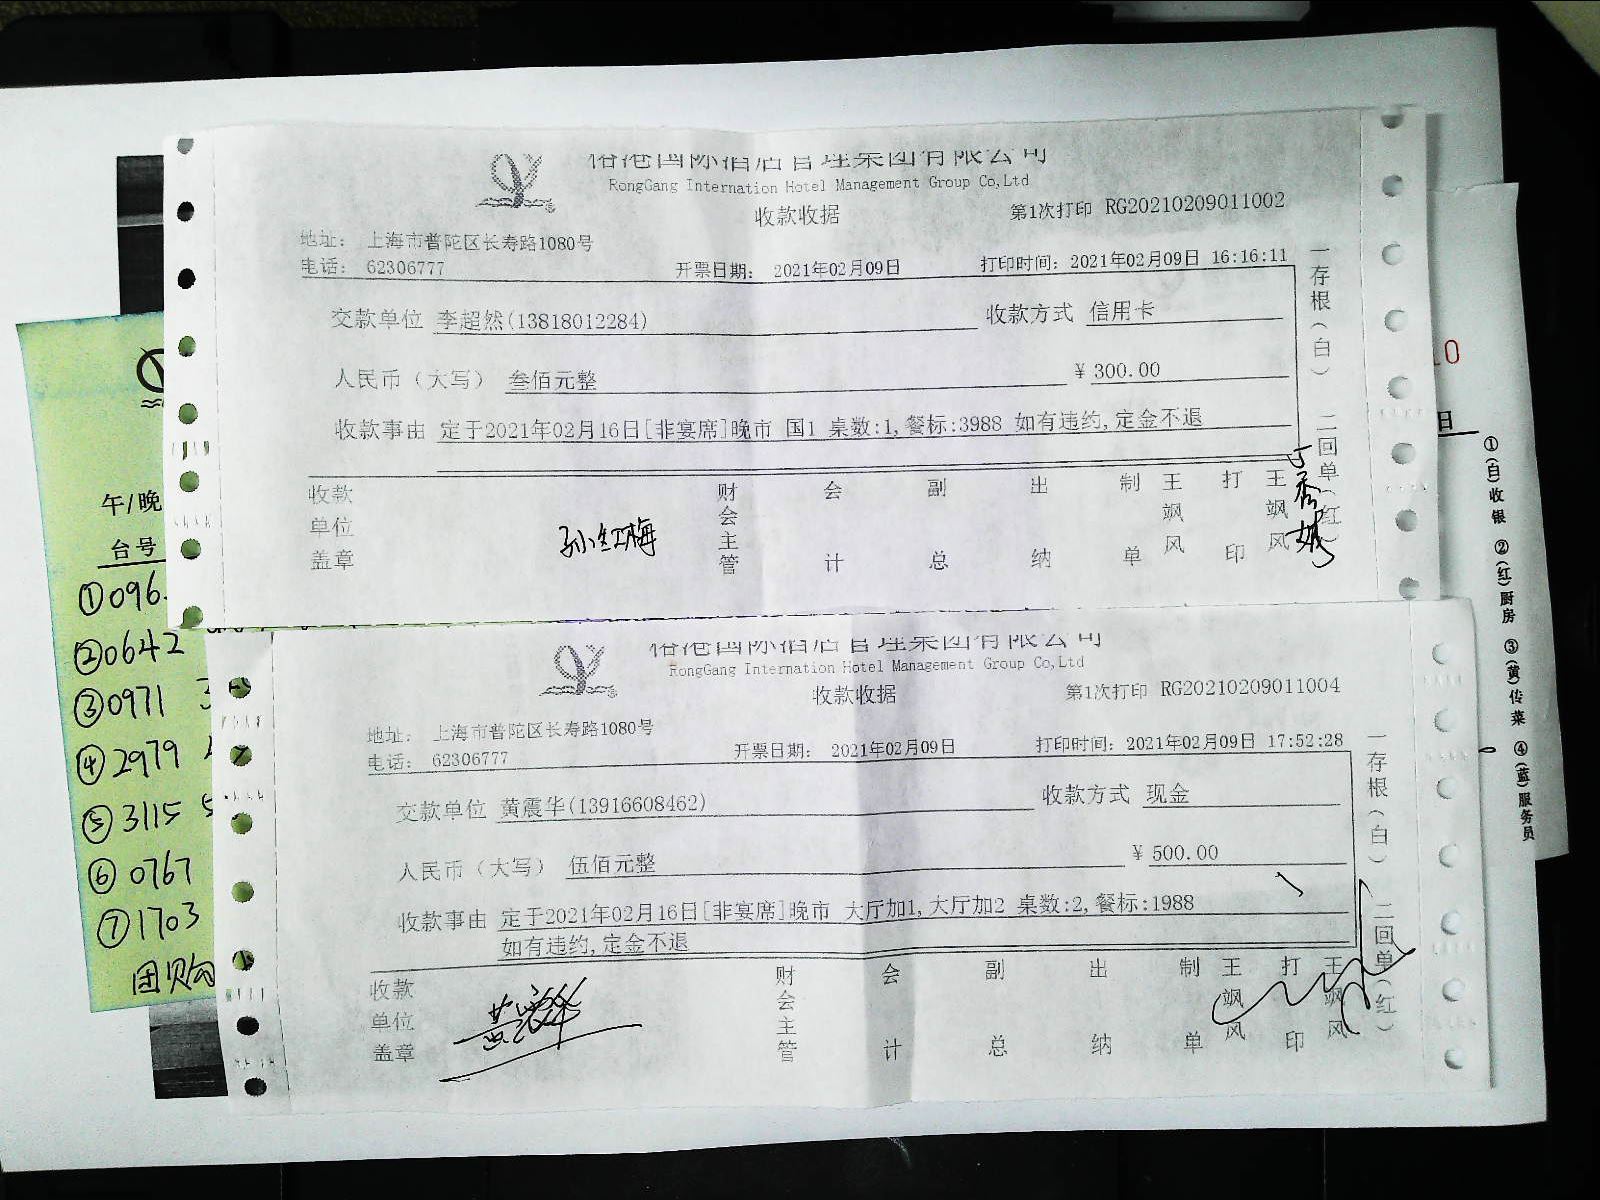 国际酒店管理集团有限公司
RongGang Internation Hotel Management Group Co,Ltd
收款收据
第1次打印 RG20210209011002
地址： 上海市普陀区长寿路1080号
电话： 62306777
开票日期： 2021年02月09日
打印时间：2021年02月09日 16:16:11
交款单位 李超然(13818012284)
收款方式 信用卡
人民币（大写） 叁佰元整
￥300.00
收款事由 定于2021年02月16日[非宴席]晚市 国1 桌数:1,餐标:3988 如有违约,定金不退
收款单位盖章
孙红梅
财会主管
会计
副总
出纳
制单
王飒风
打印
王飒风
一存根(白) 二回单(红)
国际酒店管理集团有限公司
RongGang Internation Hotel Management Group Co,Ltd
收款收据
第1次打印 RG20210209011004
地址： 上海市普陀区长寿路1080号
电话： 62306777
开票日期： 2021年02月09日
打印时间：2021年02月09日 17:52:28
交款单位 黄震华(13916608462)
收款方式 现金
人民币（大写） 伍佰元整
￥500.00
收款事由 定于2021年02月16日[非宴席]晚市 大厅加1,大厅加2 桌数:2,餐标:1988
如有违约,定金不退
收款单位盖章
黄震华
财会主管
会计
副总
出纳
制单
王飒风
打印
王飒风
一存根(白) 二回单(红)
午/晚
台号
①096
②0642
③0971
④2979
⑤3115 5
⑥0767
⑦1703
团购
10
日
①(白)收银 ②(红)厨房 ③(黄)传菜 ④(蓝)服务员